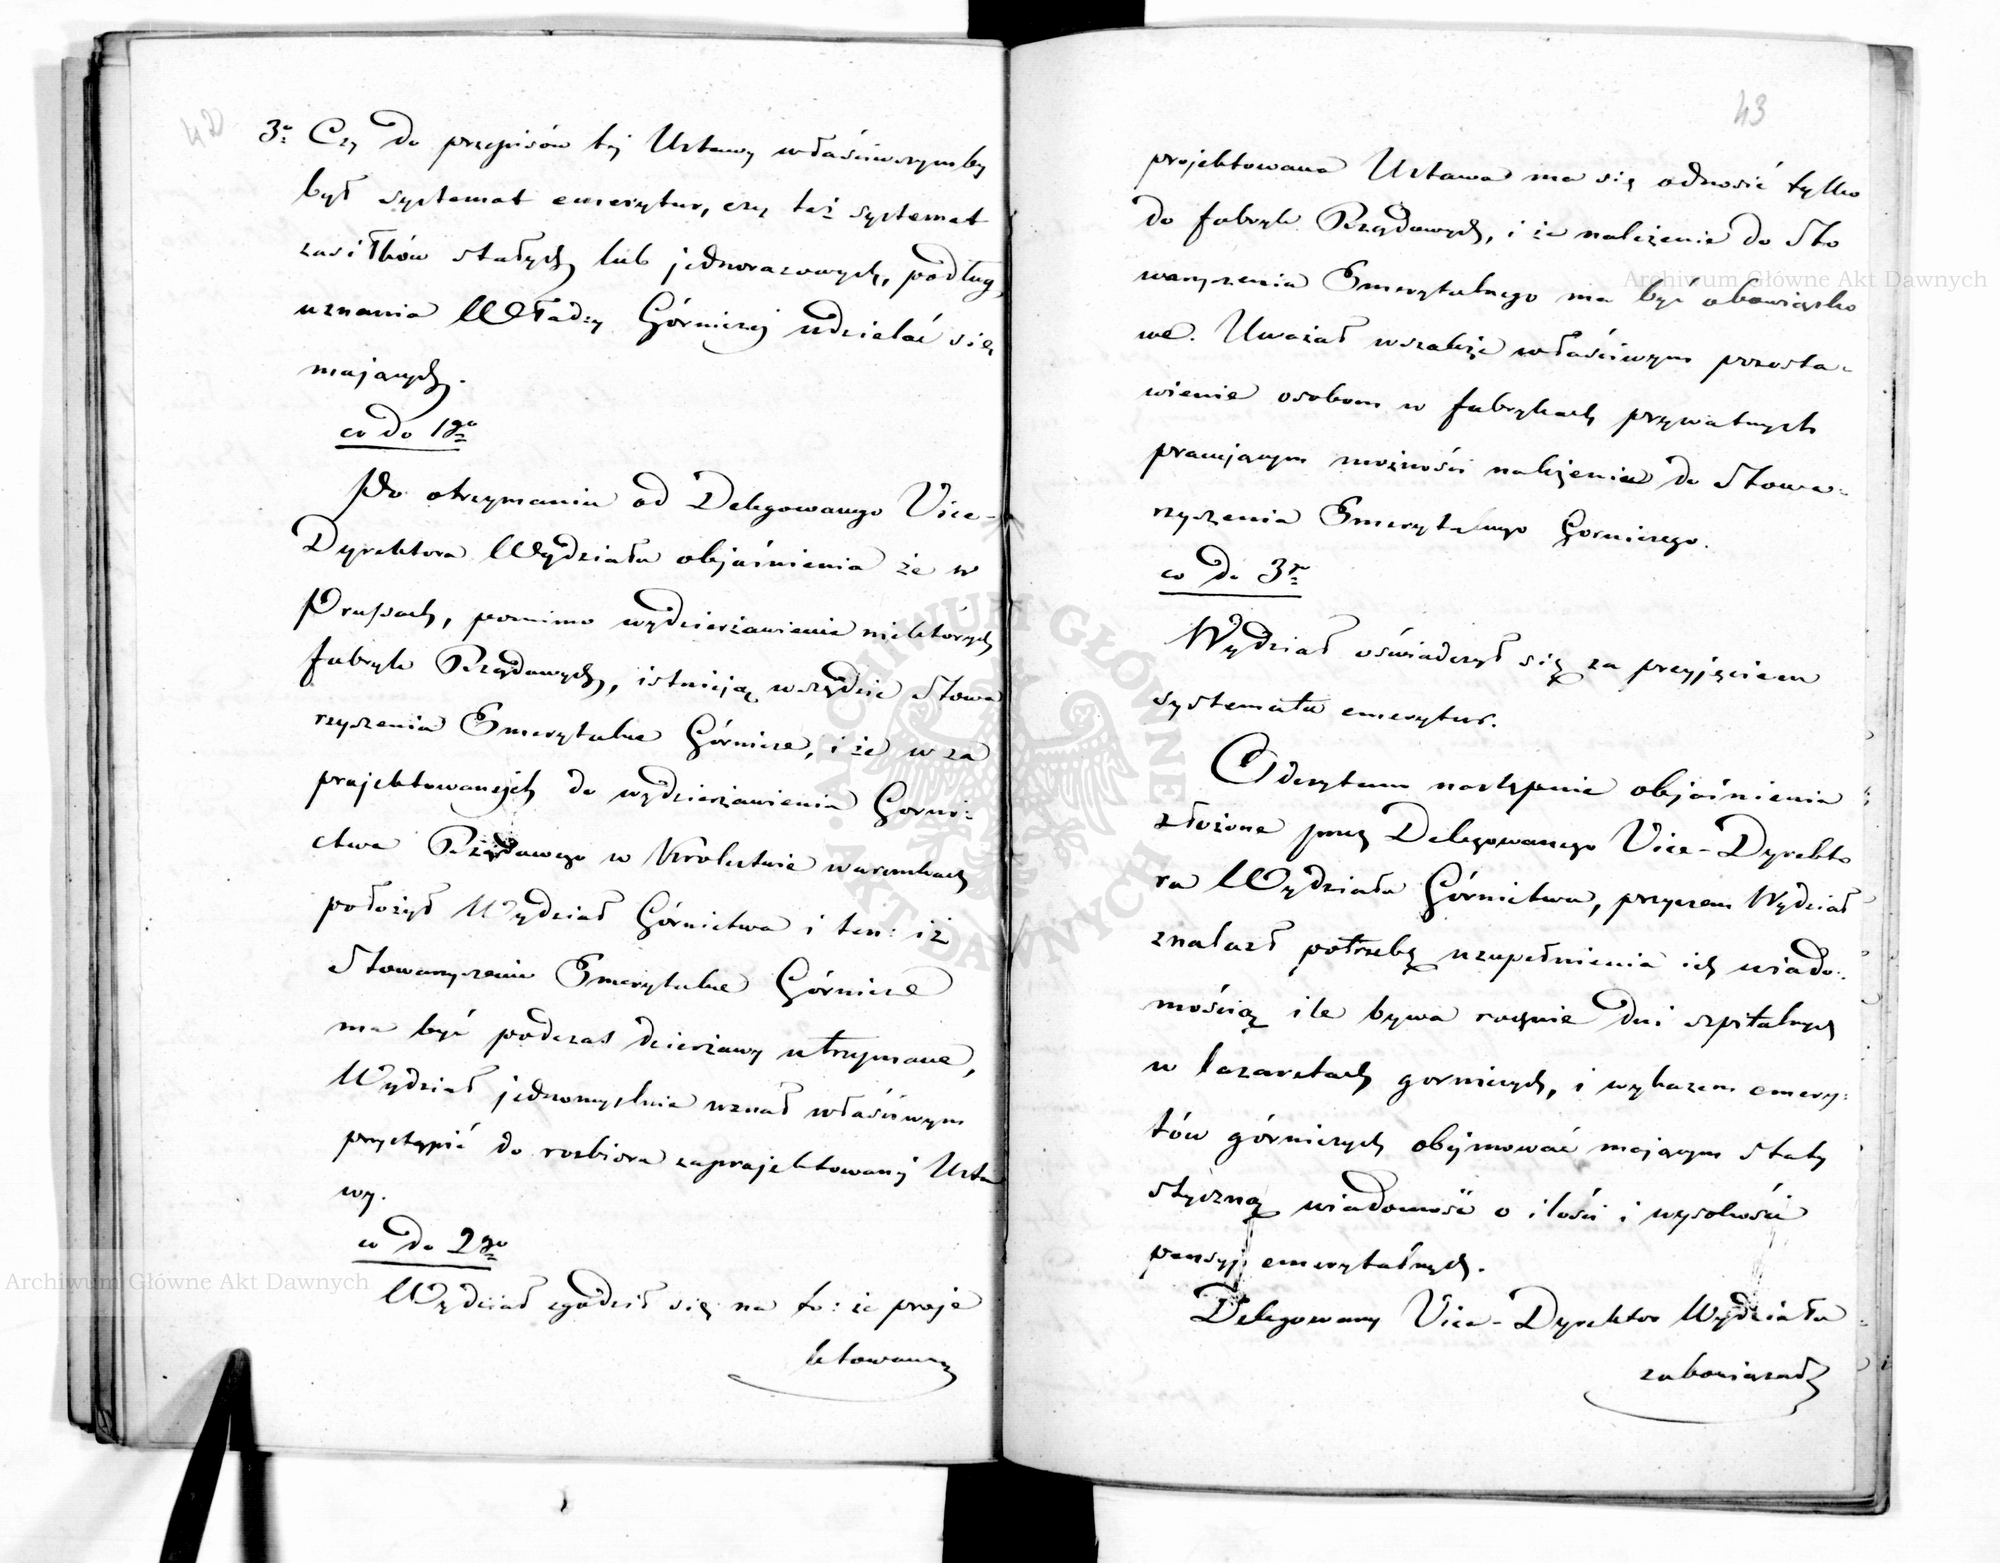 42
3o Czy do przepisów tej Ustawy właściwszymby
był systemat emerytur, czy też systemat
zasiłków stałych lub jednorazowych, podług
uznania Władzy Górniczej udzielać się
mających.
co do 1go
Po otrzymaniu od Delegowanego Vice-
Dyrektora Wydziału objaśnienia że w
Prussach, pomimo wydzierżawienia niektórych
fabryk Rządowych, istnieją wszędzie Stowa
rzyszenia Emerytalne Górnicze, i że w za
projektowanych do wydzierżawienia Gorni-
ctwa Rządowego w Krolestwie warunkach
położył Wydział Górnictwa i ten: iż
Stowarzyszenie Emerytalne Górnicze
ma być podczas dzierżawy utrzymane,
Wydział jednomyślnie uznał właściwym
przystąpić do rozbioru zaprojektowanej Usta
wy.
co do 2go
Wydział zgodził się na to: że proje
ktowana
43
projektowana Ustawa ma się odnosić tylko
do fabryk Rządowych, i że należenie do Sto
warzyszenia Emerytalnego ma być obowiązko
we. Uważał wszakże właściwym pozosta-
wienie osobom w fabrykach prywatnych
pracującym możności należenia do Stowa-
rzyszenia Emerytalnego Gorniczego.
co do 3o
Wydział oświadczył się za przyjęciem
systematu emerytur.
Odczytano następnie objaśnienia
złożone przez Delegowanego Vice-Dyrekto
ra Wydziału Górnictwa, przyczem Wydział
znalazł potrzebę uzupełnienia ich wiado-
mością ile bywa rocznie dni szpitalnych
w lazaretach gorniczych, i wykazem emery-
tów górniczych obejmować mającym staty
styczną wiadomość o ilości i wysokości
pensyj emerytalnych.
Delegowany Vice-Dyrektor Wydziału
zobowiązał
Archiwum Główne Akt Dawnych
Archiwum Główne Akt Dawnych
ARCHIWUM GŁÓWNE AKT DAWNYCH